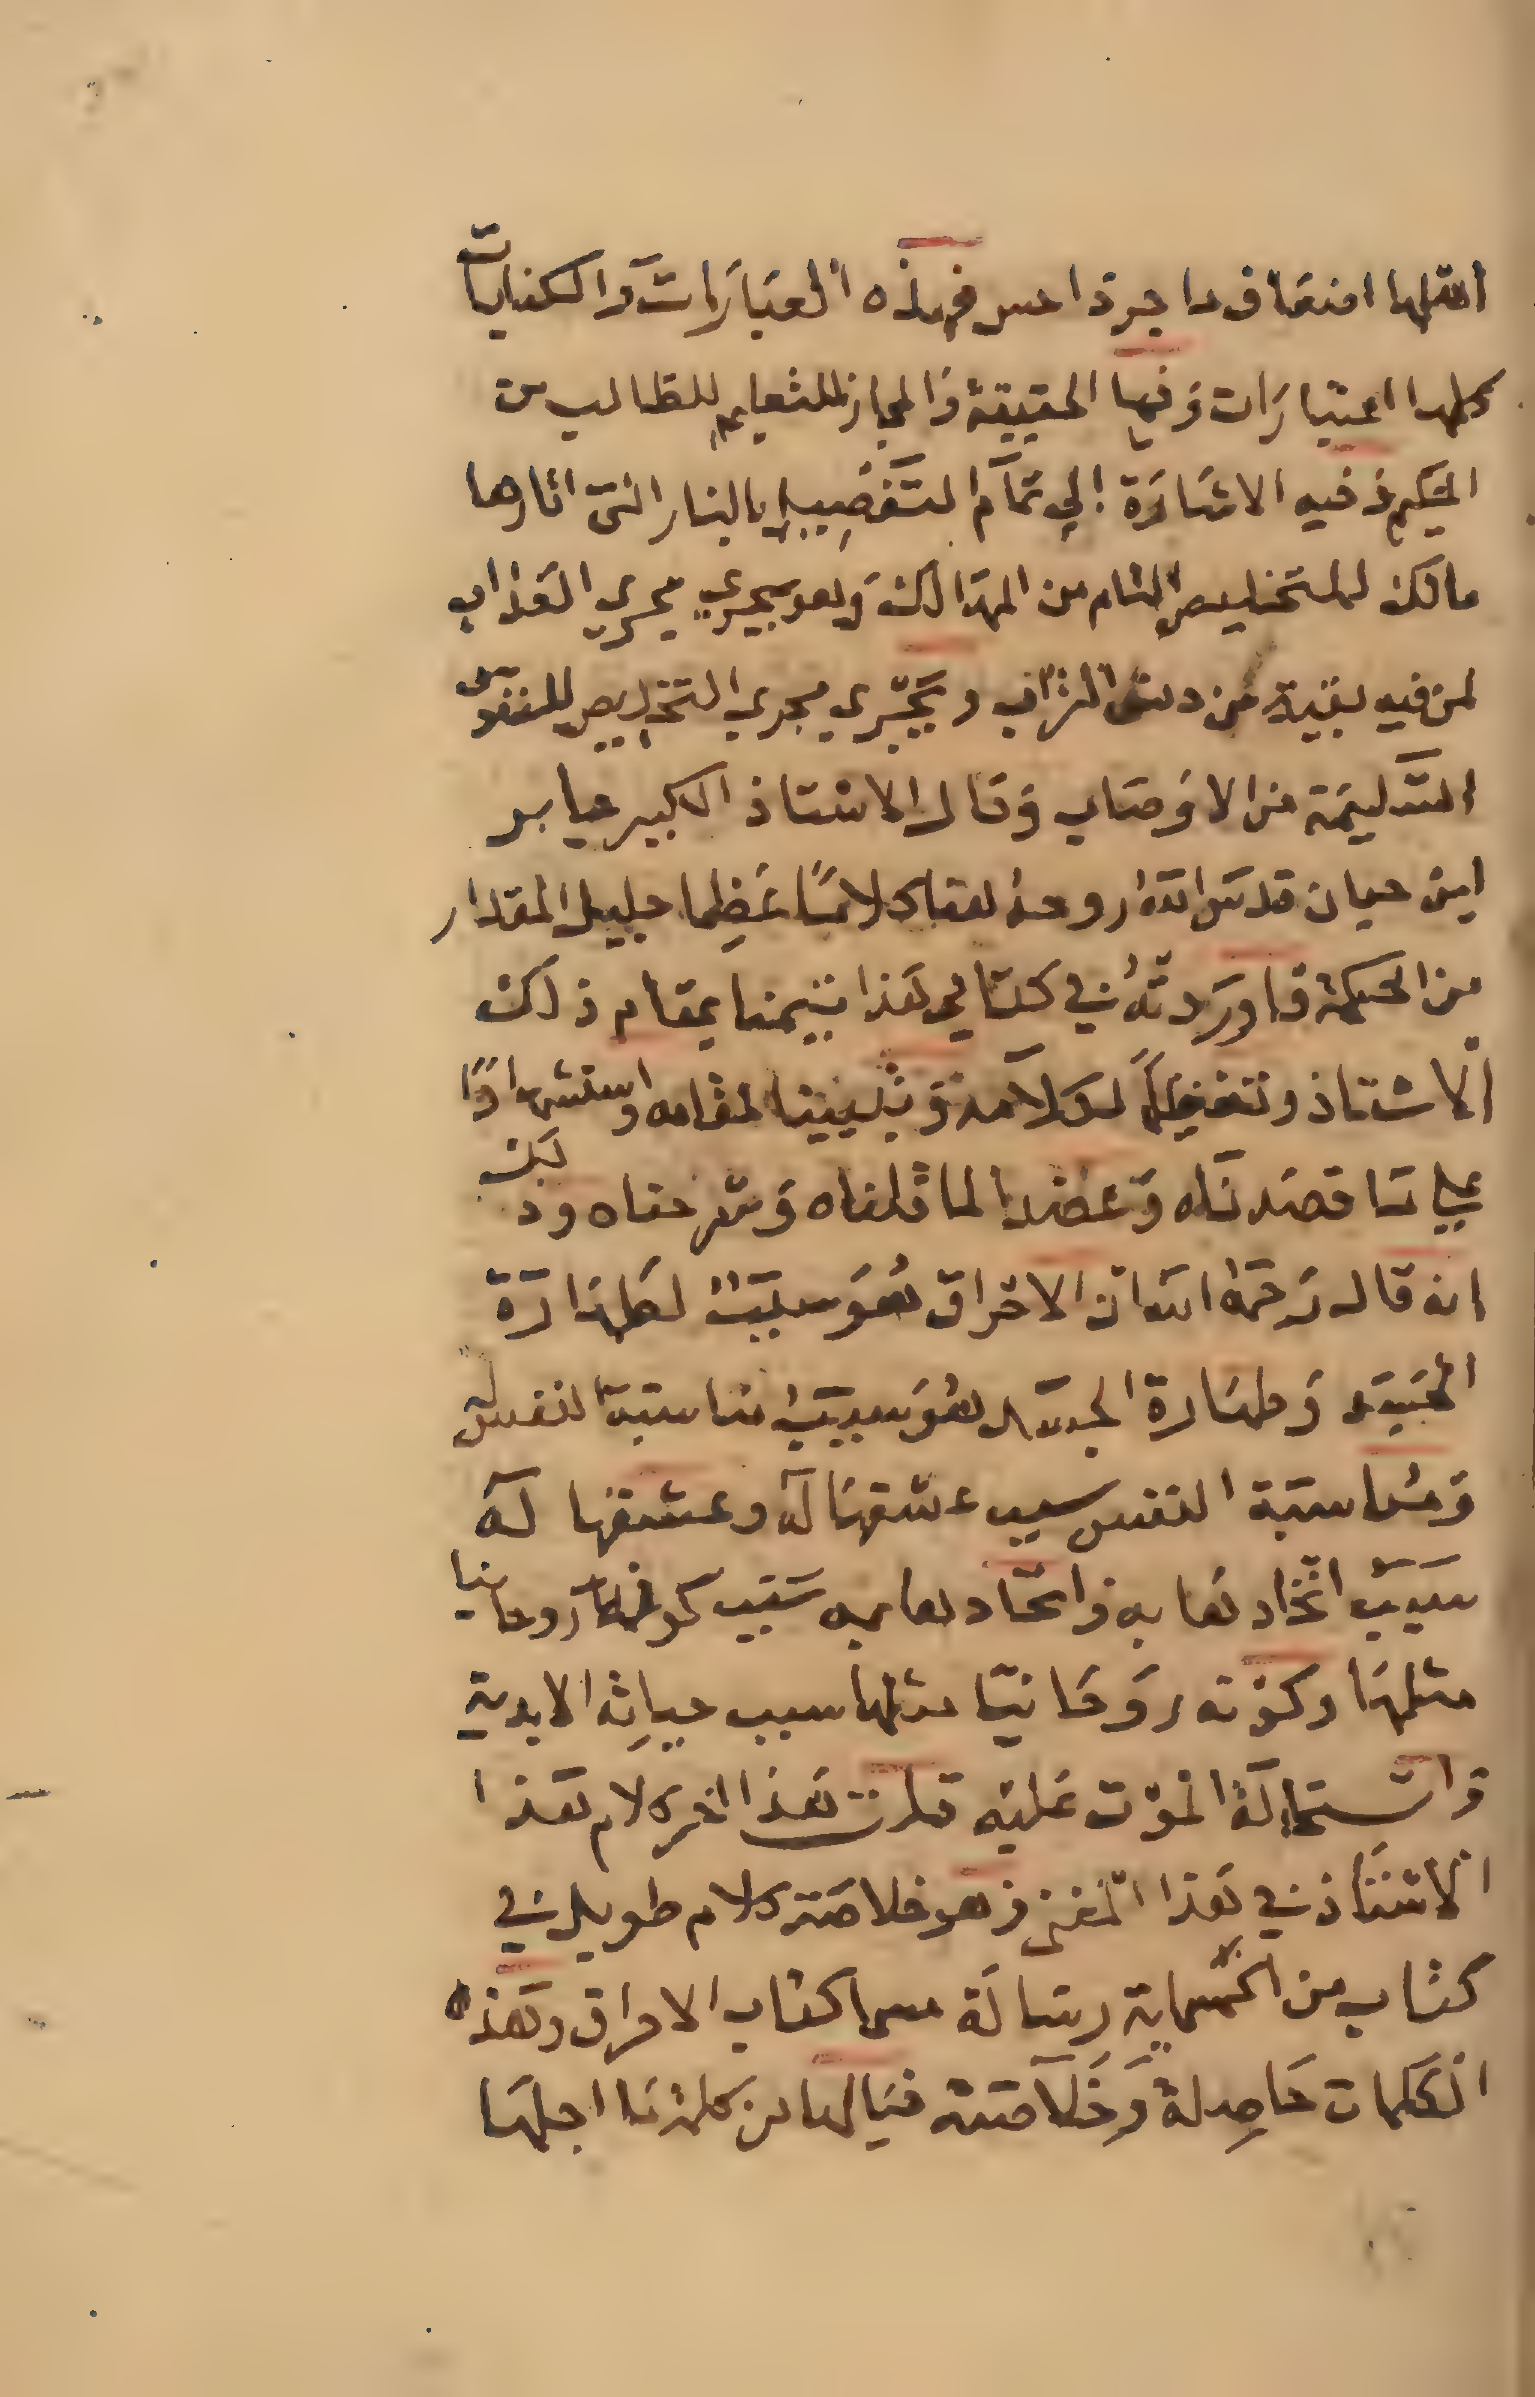 فهذه العبارات والكنايات
كلها اعتبارات وفيها الحقيقة والمجاز للتعليم للطالب من
الحكيم وفيه الاشارة الي تمام التفصيل بالنار التي اثارها
مالك للتخليص التام من المهالك وهو يجري مجري العذاب
لمن فيه بقية من دنس التراب ويجري مجري التخليص للنفوس
السليمة من الاوصاب وقال الاستاذ الكبير جابر
ابن حيان قدس الله روحه كلاما عظيما جليل المقدار
من الحكمة فاوردته في كتابي هذا تيمنا بمقام ذلك
الاستاذ وتعظيما لكلامه وتبيينا لمقامه واستشهادا
علي ما قصدناه وعضدا لما قلناه وشرحناه وذلك
انه قال رحمه الله ان الاحراق هو سبب لطهارة
الجسد وطهارة الجسد هو سبب مناسبة النفس له
ومناسبة النفس سبب عشقها له وعشقها له
سبب اتحادها به واتحادها به سبب كونه روحانيا
مثلها وكونه روحانيا مثلها سبب حياته الابدية
واستحالة الموت عليه قلت هذا اخر كلام هذا
الاستاذ في هذا المعني وهو خلاصة كلام طويل في
كتاب من الخمسماية رسالة سماه كتاب الاحراق وهذه
الكلمات حاصلة وخلاصته فيالها من كلمة ما اجلها